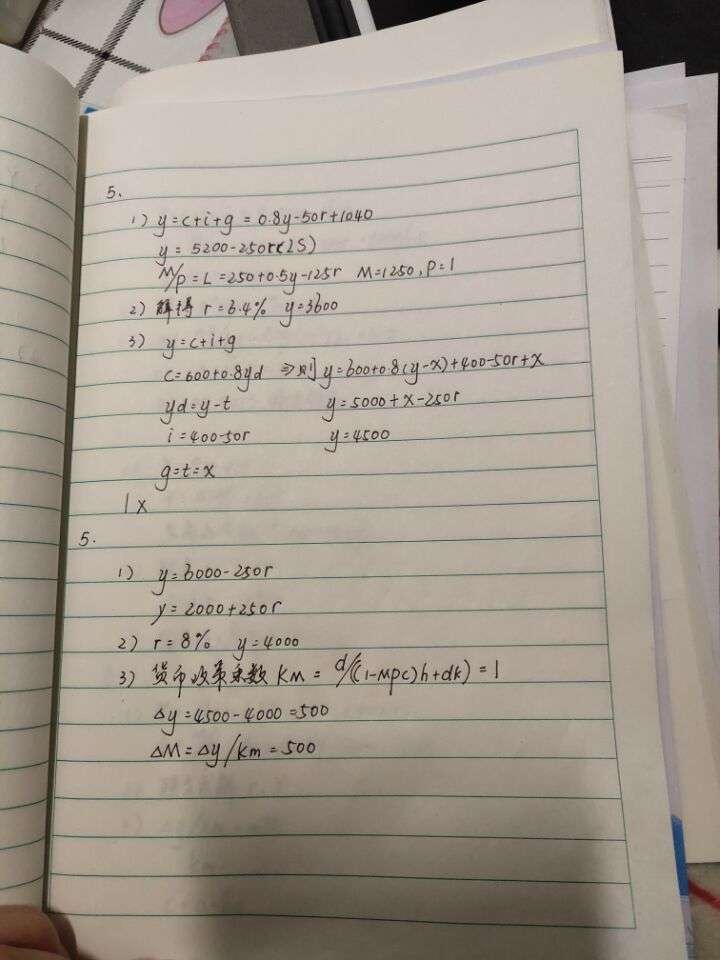 5.
1) y=c+i+g = 0.8y-50r+1040
y = 5200-250r(IS)
M/P = L = 250+0.5y-125r M=1250, P=1
2) 解得 r=6.4% y=3600
3) y=c+i+g
c=600+0.8yd ⇒则 y=600+0.8(y-x)+400-50r+x
yd=y-t y=5000+x-250r
i=400-50r y=4500
g=t=x
1x
5.
1) y=6000-250r
y=2000+250r
2) r=8% y=4000
3) 货币政策乘数 KM = d/((1-MPC)h+dk) = 1
Δy=4500-4000=500
ΔM=Δy/KM=500